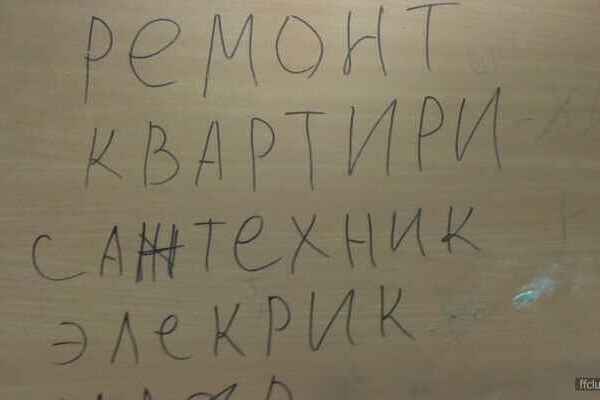 РЕМОНТ
КВАРТИРИ
САНТЕХНИК
ЭЛЕКРИК
ffclu